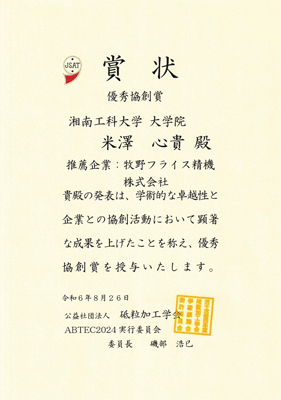 JSAT
賞状
優秀協創賞
湘南工科大学 大学院
米澤 心貴 殿
推薦企業：牧野フライス精機
株式会社
貴殿の発表は、学術的な卓越性と
企業との協創活動において顕著
な成果を上げたことを称え、優秀
協創賞を授与いたします。
令和6年8月26日
公益社団法人 砥粒加工学会
ABTEC2024 実行委員会
委員長 磯部 浩已